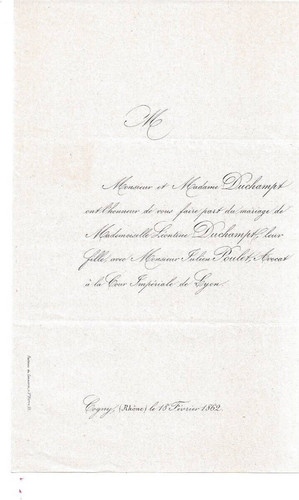 M
Monsieur et Madame Duchampt
ont l'honneur de vous faire part du mariage de
Mademoiselle Léontine Duchampt, leur
fille, avec Monsieur Julien Poulet, Avocat
à la Cour Impériale de Lyon.
Cogny, (Rhône) le 18 Février 1862.